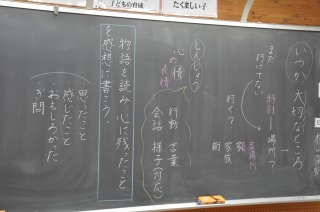 子どもの育成
たくましい子
いつか、大切なところ
まだ
行けてない
特別
場所って
行くて?
居場所
家族
しんじょう
心の情
表情
行動 言葉
会話 様子(対応)
物語を読み、心に残ったこと
を感想に書こう。
思ったこと
感じたこと
おもしろかった
ぎ問